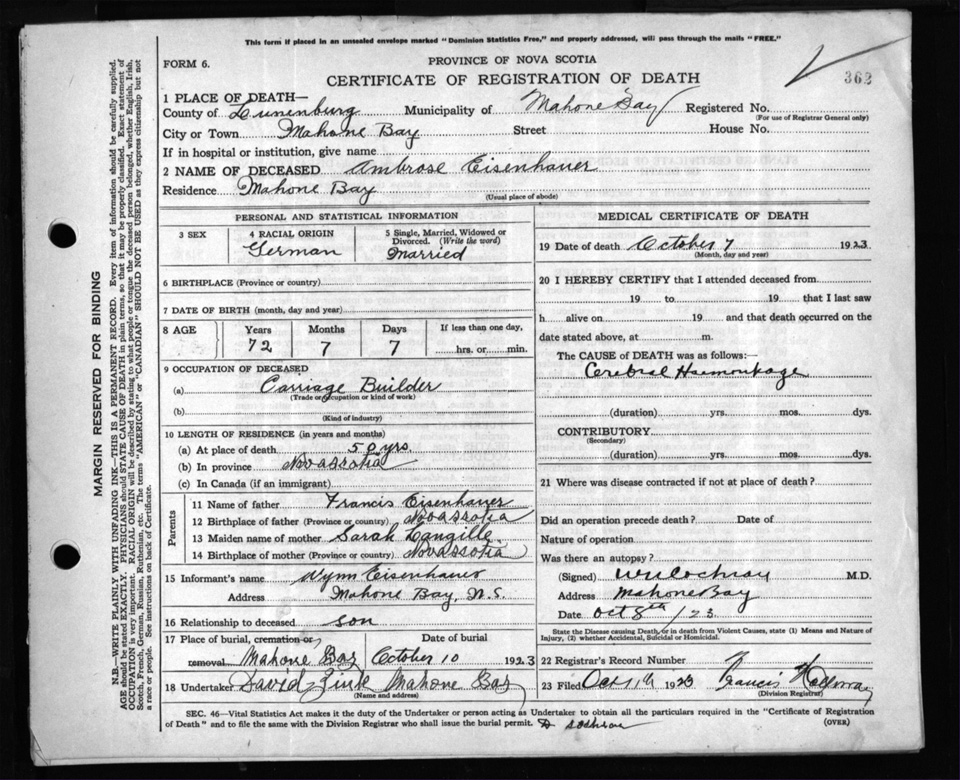 This form if placed in an unsealed envelope marked "Dominion Statistics Free," and properly addressed, will pass through the mails "FREE."
FORM 6.
PROVINCE OF NOVA SCOTIA
CERTIFICATE OF REGISTRATION OF DEATH
362
1 PLACE OF DEATH—
County of Lunenburg Municipality of Mahone Bay Registered No.
(For use of Registrar General only)
City or Town Mahone Bay Street House No.
If in hospital or institution, give name
2 NAME OF DECEASED Ambrose Eisenhauer
Residence Mahone Bay
(Usual place of abode)
PERSONAL AND STATISTICAL INFORMATION
3 SEX
4 RACIAL ORIGIN
German
5 Single, Married, Widowed or Divorced. (Write the word)
Married
6 BIRTHPLACE (Province or country)
7 DATE OF BIRTH (month, day and year)
8 AGE Years Months Days If less than one day,
72 7 7 hrs. or min.
9 OCCUPATION OF DECEASED
(a) Carriage Builder
(Trade or occupation or kind of work)
(b)
(Kind of industry)
10 LENGTH OF RESIDENCE (in years and months)
(a) At place of death 50 yrs.
(b) In province Nova Scotia
(c) In Canada (if an immigrant)
Parents
11 Name of father Francis Eisenhauer
12 Birthplace of father (Province or country) Nova Scotia
13 Maiden name of mother Sarah Langille
14 Birthplace of mother (Province or country) Nova Scotia
15 Informant's name Wynn Eisenhauer
Address Mahone Bay, N.S.
16 Relationship to deceased son
17 Place of burial, cremation or removal Mahone Bay
Date of burial October 10 1923
18 Undertaker David Zink Mahone Bay
(Name and address)
MEDICAL CERTIFICATE OF DEATH
19 Date of death October 7 1923
(Month, day and year)
20 I HEREBY CERTIFY that I attended deceased from
19 to 19 that I last saw
h alive on 19 and that death occurred on the
date stated above, at m.
The CAUSE of DEATH was as follows:—
Cerebral Haemorrhage
(duration) yrs. mos. dys.
CONTRIBUTORY
(Secondary)
(duration) yrs. mos. dys.
21 Where was disease contracted if not at place of death?
Did an operation precede death? Date of
Nature of operation
Was there an autopsy?
(Signed) W Cochran M.D.
Address Mahone Bay
Date Oct 8th /23
State the Disease causing Death, or in death from Violent Causes, state (1) Means and Nature of
Injury, (2) whether Accidental, Suicidal or Homicidal.
22 Registrar's Record Number
23 Filed Oct 1923 Francis Holloway
(Division Registrar)
SEC. 46—Vital Statistics Act makes it the duty of the Undertaker or person acting as Undertaker to obtain all the particulars required in the "Certificate of Registration
of Death" and to file the same with the Division Registrar who shall issue the burial permit.
(OVER)
MARGIN RESERVED FOR BINDING
N.B.—WRITE PLAINLY WITH UNFADING INK—THIS IS A PERMANENT RECORD. Every item of information should be carefully supplied.
AGE should be stated EXACTLY. PHYSICIANS should STATE CAUSE OF DEATH in plain terms, so that it may be properly classified. Exact statement of
OCCUPATION is very important. RACIAL ORIGIN will be described by stating to what people or tongue the deceased person belonged, whether English, Irish,
Scotch, French, German, Russian, Ruthenian, etc. The terms "AMERICAN" or "CANADIAN" SHOULD NOT BE USED as they express citizenship but not
a race or people. See instructions on back of Certificate.